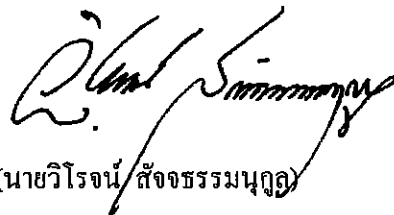 (นายวิโรจน์ สัจจธรรมนุกูล)